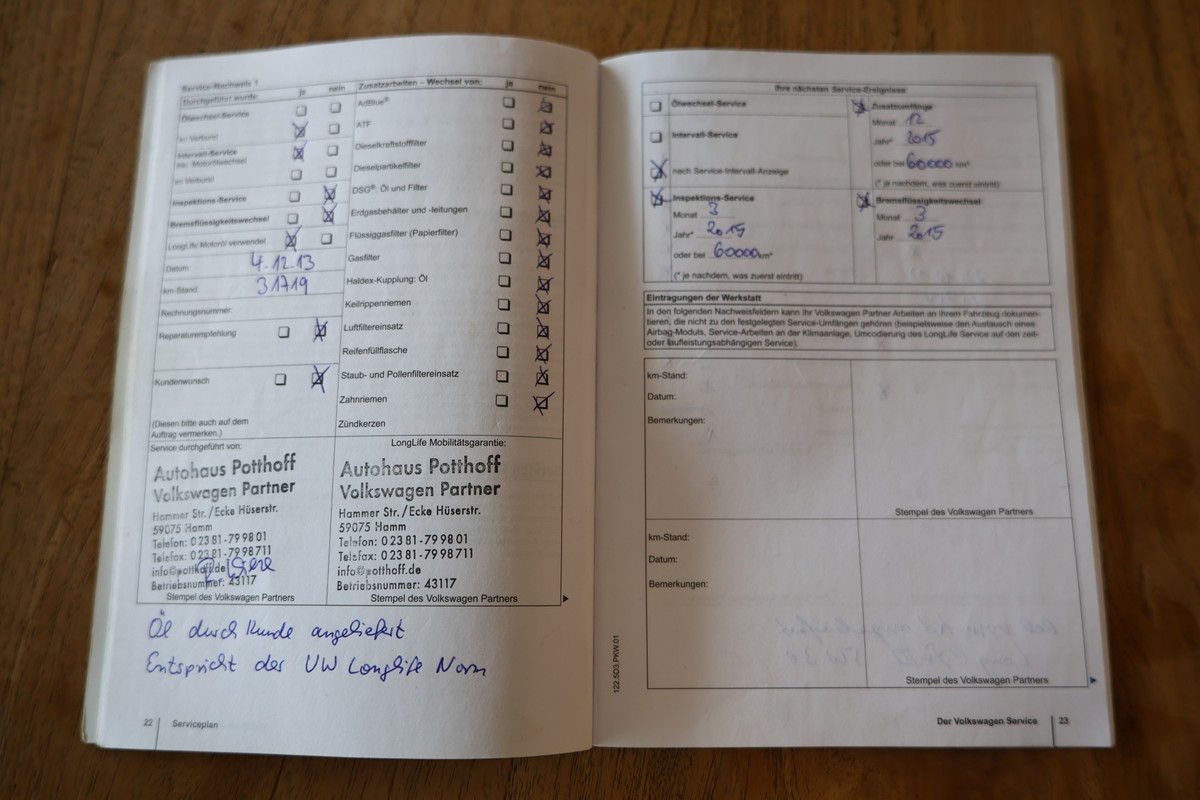 Service-Nachweis 1
Durchgeführt wurde: ja nein
Ölwechsel-Service
im Verbund
Intervall-Service
inkl. Motorölwechsel
im Verbund
Inspektions-Service
Bremsflüssigkeitswechsel
LongLife Motoröl verwendet
Datum: 4.12.13
km-Stand: 31719
Rechnungsnummer:
Reparaturempfehlung
Kundenwunsch
(Diesen bitte auch auf dem
Auftrag vermerken.)
Zusatzarbeiten – Wechsel von: ja nein
AdBlue®
ATF
Dieselkraftstofffilter
Dieselpartikelfilter
DSG®: Öl und Filter
Erdgasbehälter und -leitungen
Flüssiggasfilter (Papierfilter)
Gasfilter
Haldex-Kupplung: Öl
Keilrippenriemen
Luftfiltereinsatz
Reifenfüllflasche
Staub- und Pollenfiltereinsatz
Zahnriemen
Zündkerzen
Service durchgeführt von:
Autohaus Potthoff
Volkswagen Partner
Hammer Str./Ecke Hüserstr.
59075 Hamm
Telefon: 0 23 81 - 79 98 01
Telefax: 0 23 81 - 79 98 711
info@potthoff.de
Betriebsnummer: 43117
Stempel des Volkswagen Partners
LongLife Mobilitätsgarantie:
Autohaus Potthoff
Volkswagen Partner
Hammer Str./Ecke Hüserstr.
59075 Hamm
Telefon: 0 23 81 - 79 98 01
Telefax: 0 23 81 - 79 98 711
info@potthoff.de
Betriebsnummer: 43117
Stempel des Volkswagen Partners
Öl durch Kunde angeliefert
Entspricht der VW Longlife Norm
22 Serviceplan
Ihre nächsten Service-Ereignisse
Ölwechsel-Service
Intervall-Service
nach Service-Intervall-Anzeige
Inspektions-Service
Monat 3
Jahr* 2015
oder bei 60000 km*
(* je nachdem, was zuerst eintritt)
Zusatzumfänge
Monat 12
Jahr* 2015
oder bei 60000 km*
(* je nachdem, was zuerst eintritt)
Bremsflüssigkeitswechsel
Monat 3
Jahr 2015
Eintragungen der Werkstatt
In den folgenden Nachweisfeldern kann Ihr Volkswagen Partner Arbeiten an Ihrem Fahrzeug dokumen-
tieren, die nicht zu den festgelegten Service-Umfängen gehören (beispielsweise den Austausch eines
Airbag-Moduls, Service-Arbeiten an der Klimaanlage, Umcodierung des LongLife Service auf den zeit-
oder laufleistungsabhängigen Service).
km-Stand:
Datum:
Bemerkungen:
Stempel des Volkswagen Partners
km-Stand:
Datum:
Bemerkungen:
Stempel des Volkswagen Partners
122.5D3.PKW.01
Der Volkswagen Service 23